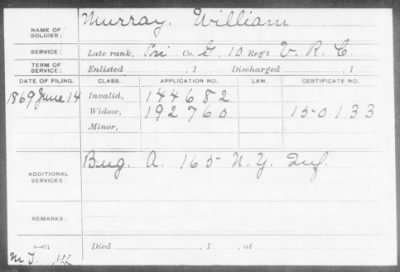 NAME OF SOLDIER: Murray, William
SERVICE: Late rank, Pri Co. G, 10 Reg't V. R. C.
TERM OF SERVICE: Enlisted , 1 Discharged , 1
DATE OF FILING. CLASS. APPLICATION NO. LAW. CERTIFICATE NO.
1869 June 14 Invalid, 144682
Widow, 192760 150133
Minor,
ADDITIONAL SERVICES: Bug. A. 165 N.Y. Inf.
REMARKS:
Died , 1 , at